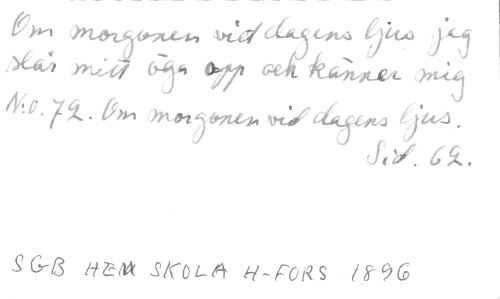 Om morgonen vid dagens ljus jag
slår mitt öga opp och känner mig
N:o. 72. Om morgonen vid dagens ljus.
Sid. 62.
SGB HEM SKOLA H-FORS 1896